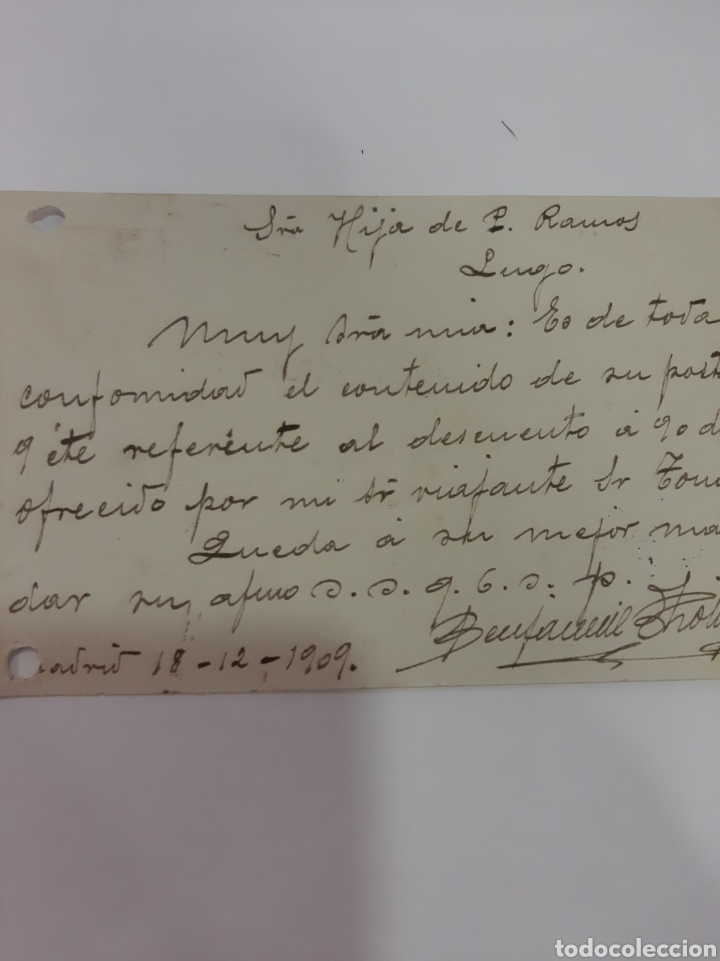 Sra Hija de P. Ramos
Lugo.
Muy Sra mia: Es de toda
confomidad el contenido de su post
referente al descuento á 90 d
ofrecido por mi Sr viajante Sr
Queda á su mejor ma
dar su afmo s. s. q. b. s. p.
Benjamin
adrid 18-12-1909.
todocoleccion